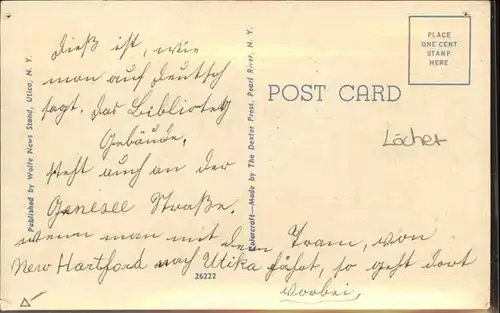 Dieß ist, wie
man auf Deutsch
sagt. Das Bibliotek
Gebäude,
steht auch an der
Genesee Straße.
wenn man mit dem Tram, von
New Hartford nach Utika fährt, so geht dort
vorbei,
Published by Wolfe News Stand, Utica, N. Y.
Colorcraft—Made by The Dexter Press, Pearl River, N. Y.
POST CARD
PLACE
ONE CENT
STAMP
HERE
Löcher
26222